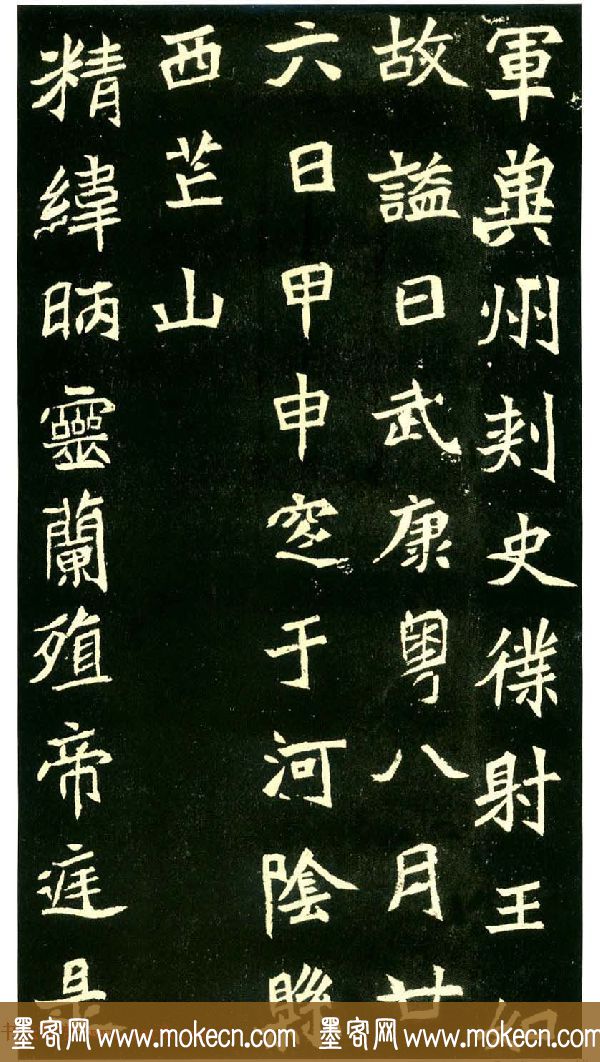 軍兾州刾史僕射王如
故謚曰武康粤八月廿
六日甲申窆于河陰縣
西芒山
精緯昞靈蘭殖帝庭
墨客网 www.mokecn.com 墨客网 www.mokecn.com